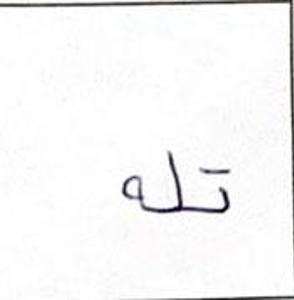 تله